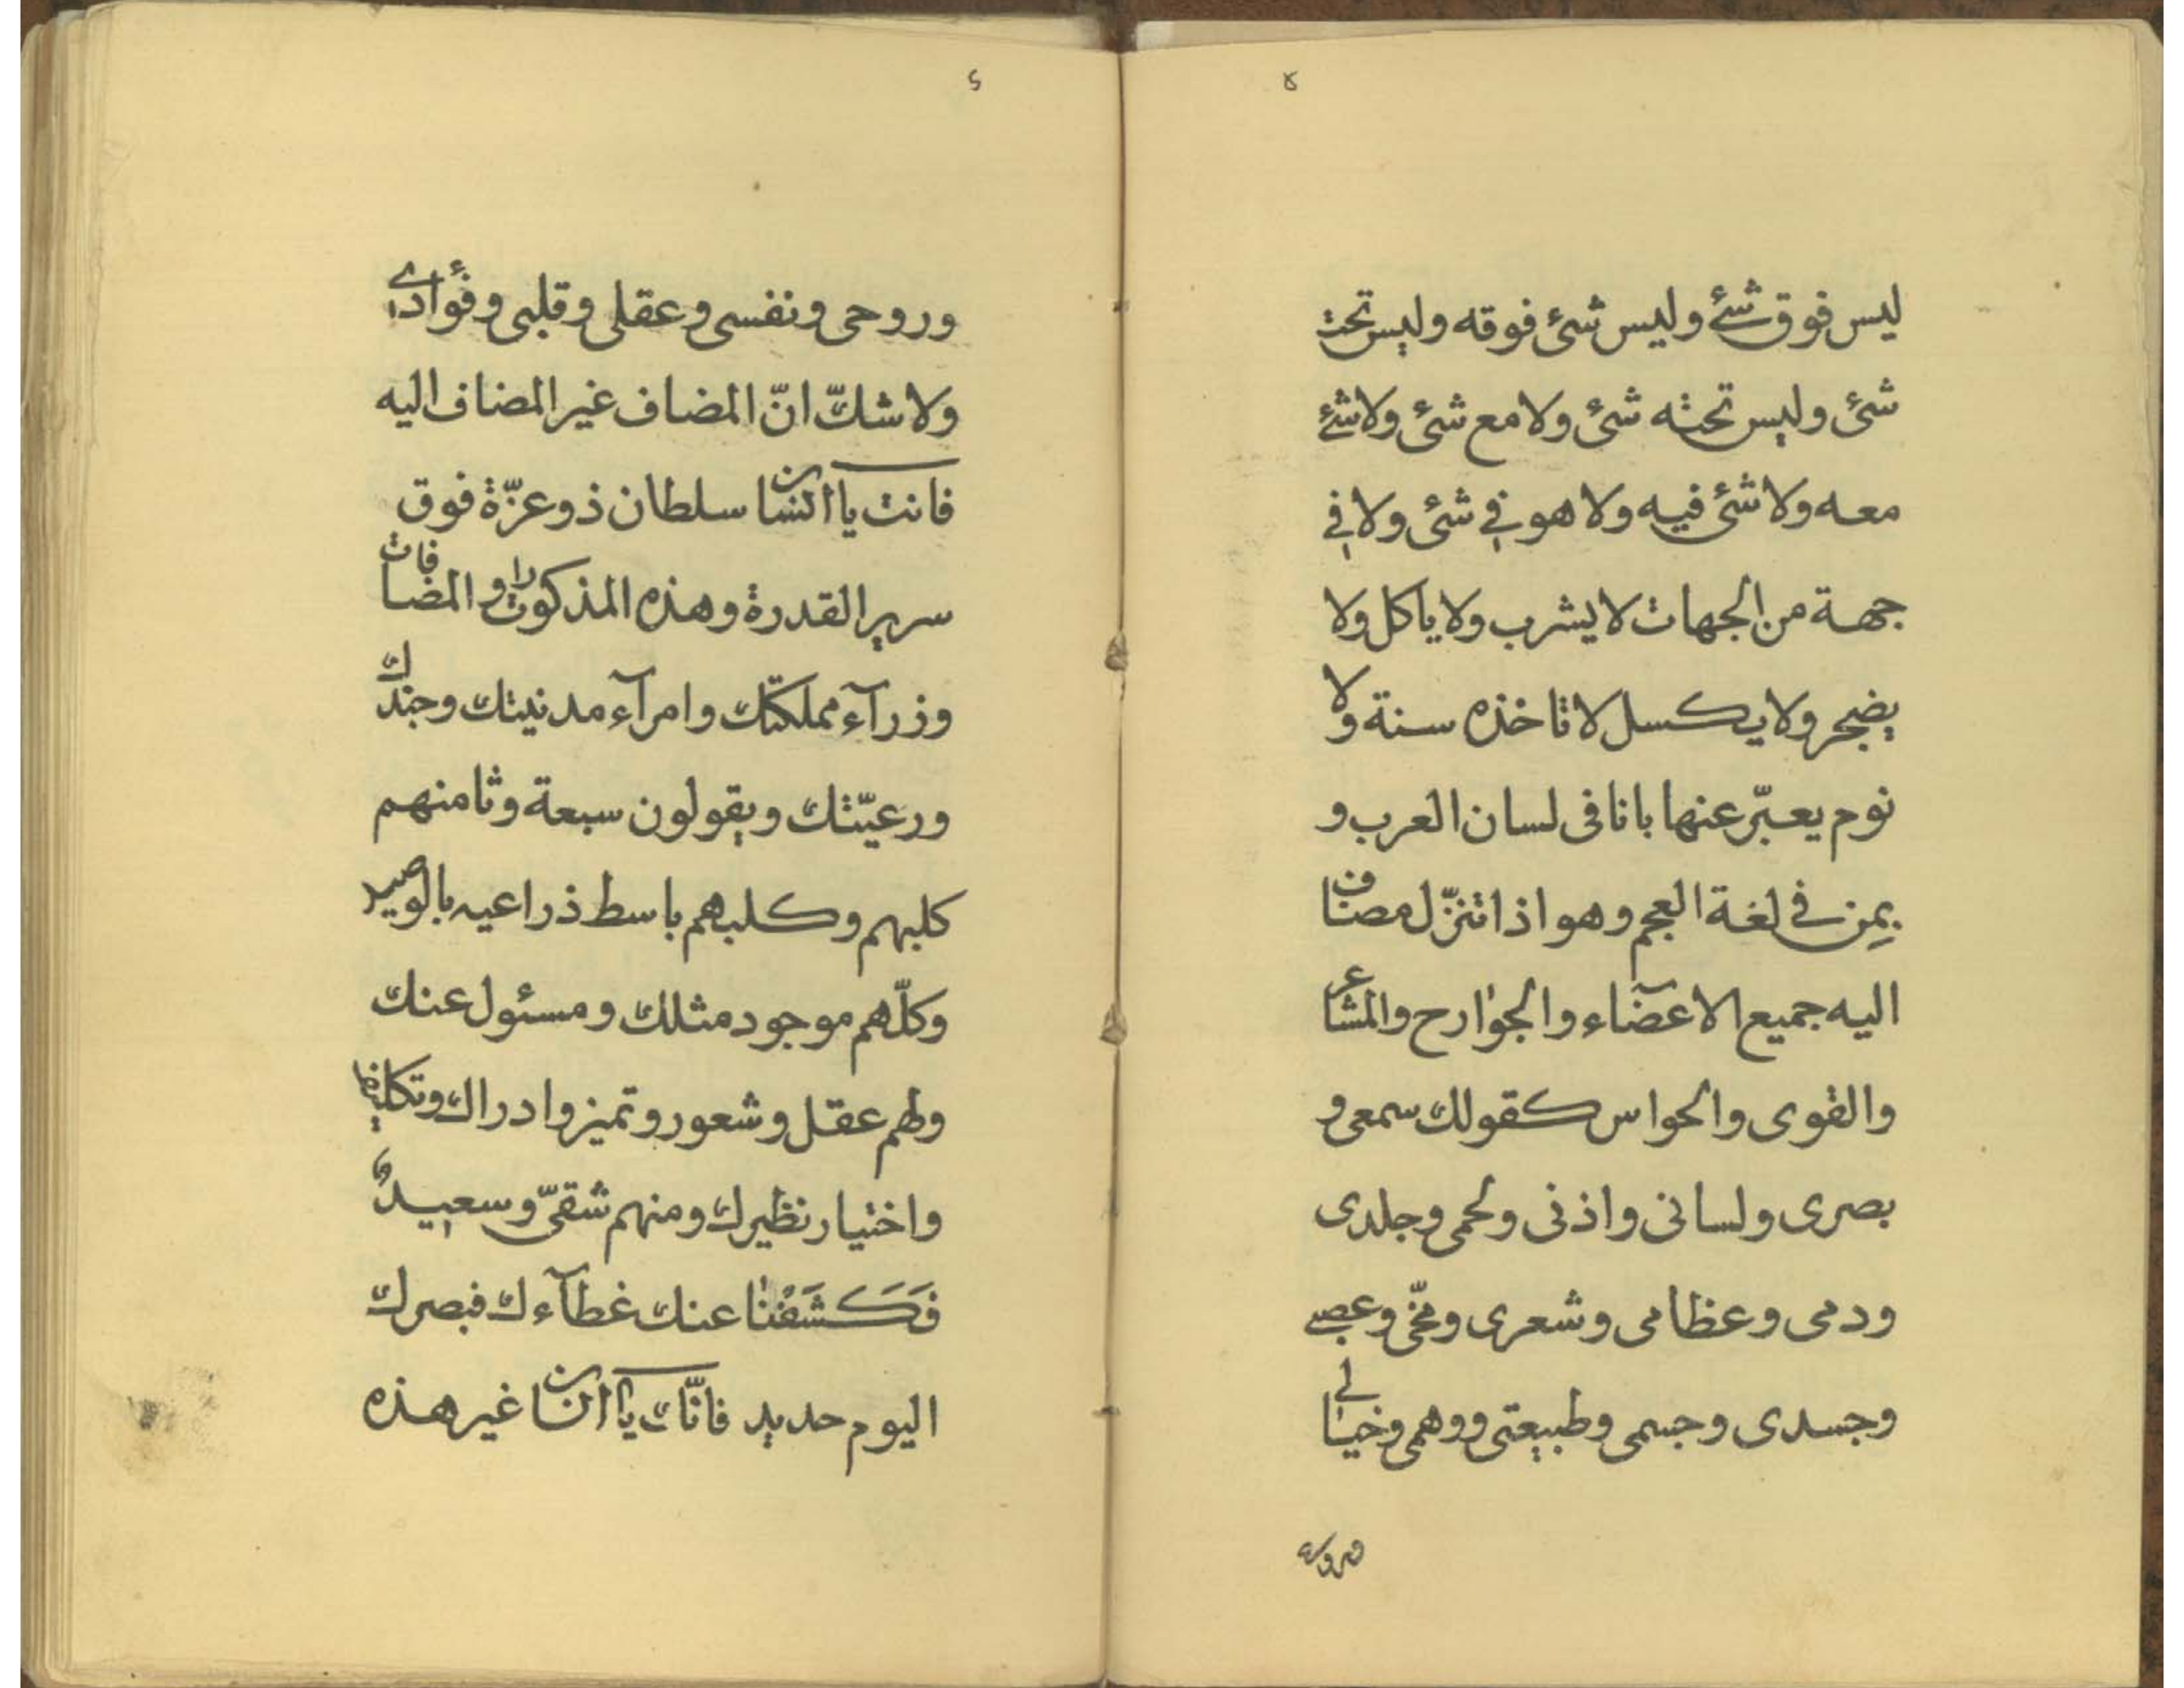 ۵
ليس فوق شئ وليس شئ فوقه وليس تحت
شئ وليس تحته شئ ولا مع شئ ولا شئ
معه ولا شئ فيه ولا هو في شئ ولا في
جهة من الجهات لا يشرب ولا ياكل ولا
يضجر ولا يكسل لا تاخذه سنة ولا
نوم يعبّر عنها بانا فى لسان العرب و
بمِن في لغة العجم وهو اذا تنزّل مضاف
اليه جميع الاعضآء والجوارح والمشاعر
والقوى والحواس كقولك سمعى و
بصرى ولسانى واذنى ولحمى وجلدى
ودمى وعظامى وشعرى ومخّى وعصبى
وجسدى وجسمى وطبيعتى ووهمى وخيالى
وروحى
۶
وروحى ونفسى وعقلى وقلبى وفؤادي
ولا شكّ انّ المضاف غير المضاف اليه
فانت يا انسان سلطان ذو عزّة فوق
سرير القدرة وهذه المذكورات والمضافات
وزرآء مملكتك وامرآء مدنيتك وجندك
ورعيّتك ويقولون سبعة وثامنهم
كلبهم وكلبهم باسط ذراعيه بالوصيد
وكلّهم موجود مثلك ومسئول عنك
ولهم عقل وشعور وتميز وادراك وتكليف
واختيار نظيرك ومنهم شقىّ وسعيدٌ
فَكَشَفْنا عنك غطآءك فبصرك
اليوم حديد فانّك يا انسان غير هذه